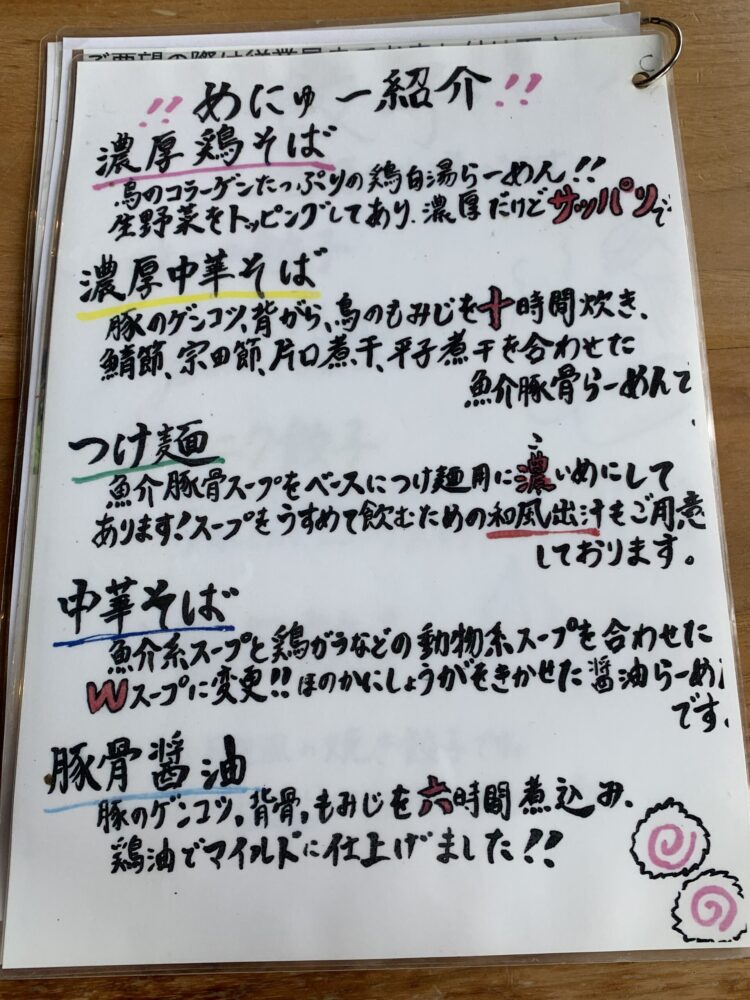 !! めにゅー紹介 !!
濃厚鶏そば
鳥のコラーゲンたっぷりの鶏白湯らーめん!!
生野菜をトッピングしてあり、濃厚だけどサッパリで
濃厚中華そば
豚のゲンコツ、背がら、鳥のもみじを十時間炊き、
鯖節、宗田節、片口煮干、平子煮干を合わせた
魚介豚骨らーめんで
つけ麺
こ
魚介豚骨スープをベースにつけ麺用に濃いめにして
あります!スープをうすめて飲むための和風出汁もご用意
しております。
中華そば
魚介系スープと鶏がらなどの動物系スープを合わせた
Wスープに変更!!ほのかにしょうがをきかせた醤油らーめん
です。
豚骨醤油
豚のゲンコツ、背骨、もみじを六時間煮込み、
鶏油でマイルドに仕上げました!!